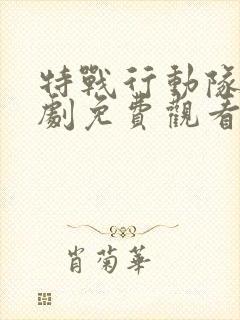 特戰行動隊
劇免費觀看
肖菊華